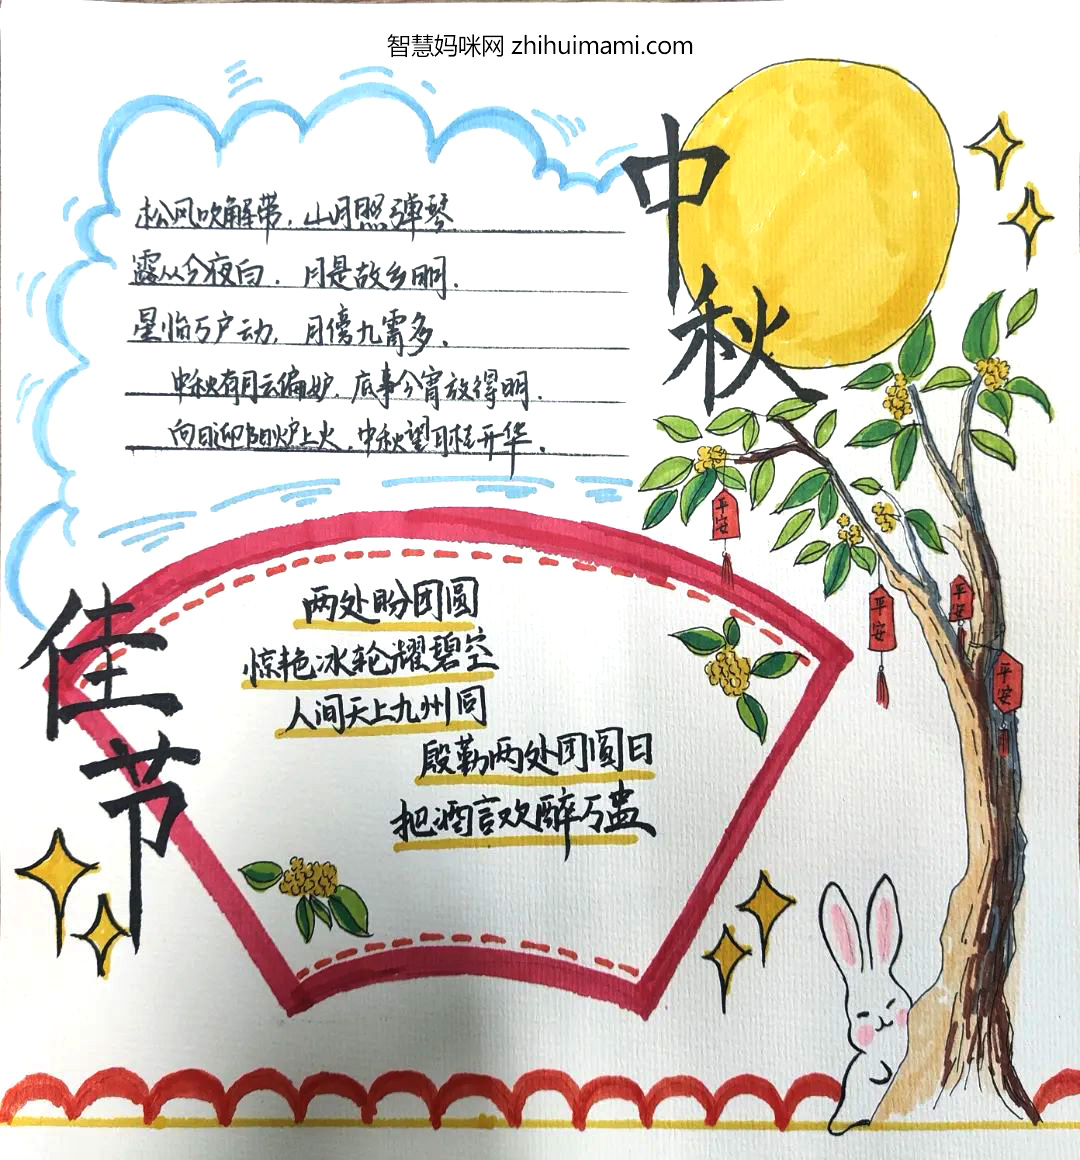 智慧妈咪网 zhihuimami.com
中秋
松风吹解带，山月照弹琴
露从今夜白，月是故乡明.
星临万户动，月傍九霄多.
中秋有月云偏妒，底事今宵放得明.
向日迎阳炉上火，中秋望月桂开华.
佳节
两处盼团圆
惊艳冰轮耀碧空
人间天上九州同
殷勤两处团圆日
把酒言欢醉万盅
平安
平安
平安
平安